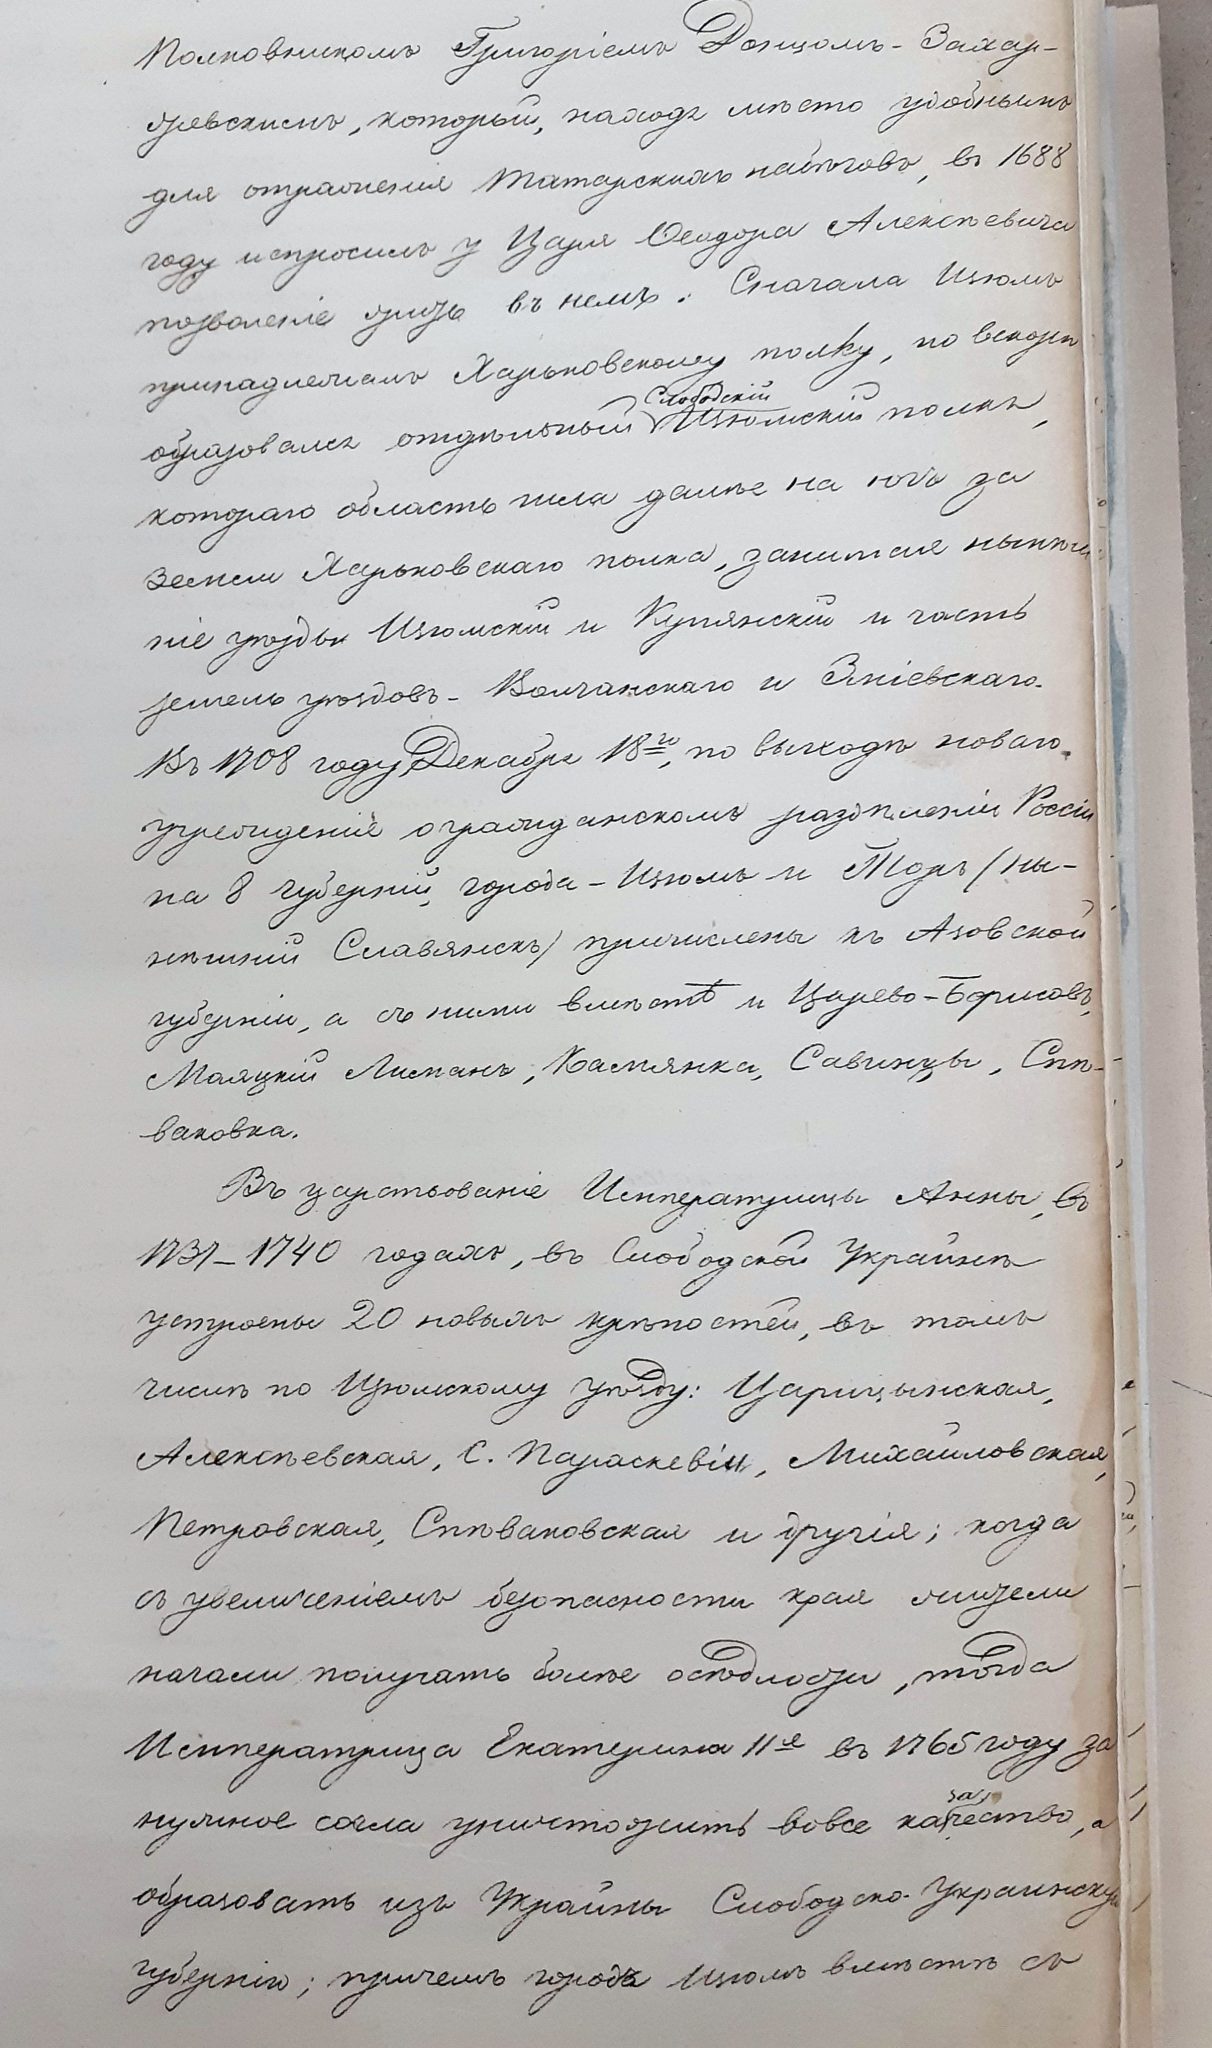 Полковникомъ Григоріемъ Донцомъ-Захар-
жевскимъ, который, находя мѣсто удобнымъ
для отраженія Татарскихъ набѣговъ, въ 1688
году испросилъ у Царя Ѳеодора Алексѣевича
позволеніе жить въ немъ. Сначала Изюмъ
принадлежалъ Харьковскому полку, но вскорѣ
образовался отдѣльный Слободскій Изюмскій полкъ,
котораго область шла далѣе на югъ за
земли Харьковскаго полка, занимая нынѣш
ніе уѣзды Изюмскій и Купянскій и часть
земель уѣздовъ - Волчанскаго и Зміевскаго.
Въ 1708 году Декабря 18го, по выходѣ новаго
учрежденіе о гражданскомъ раздѣленіи Россіи
на 8 губерній, города - Изюмъ и Торъ (ны-
нѣшній Славянскъ) причислены къ Азовской
губерніи, а съ ними вмѣстѣ и Царево-Борисовъ,
Маяцкій Лиманъ, Камянка, Савинцы, Спѣ-
ваковка.
Въ царствованіе Императрицы Анны, въ
1731-1740 годахъ, въ Слободской Украйнѣ
устроены 20 новыхъ крѣпостей, въ томъ
числѣ по Изюмскому уѣзду: Царицынская,
Алексѣевская, С. Параскевіи, Михайловская,
Петровская, Спѣваковская и другія; когда
съ увеличеніемъ безопасности края жители
начали получать болѣе осѣдлости, тогда
Императрица Екатерина IIя въ 1765 году за
нужное сочла уничтожить вовсе казачество, а
образовать изъ Украйны Слободско-Украинскую
губернію; причемъ городъ Изюмъ вмѣстѣ съ